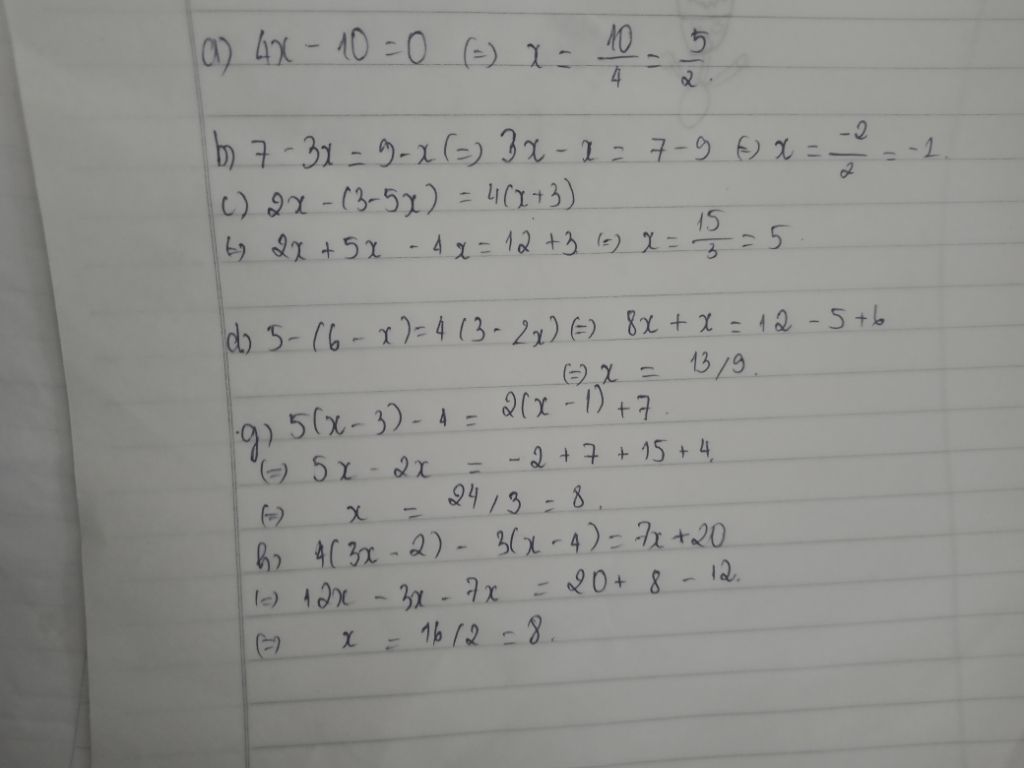 a) 4x - 10 = 0 (=) x = 10/4 = 5/2.
b) 7 - 3x = 9 - x (=) 3x - x = 7 - 9 (=) x = -2/2 = -1.
c) 2x - (3 - 5x) = 4(x + 3)
(=) 2x + 5x - 4x = 12 + 3 (=) x = 15/3 = 5.
d) 5 - (6 - x) = 4(3 - 2x) (=) 8x + x = 12 - 5 + 6
(=) x = 13/9.
g) 5(x - 3) - 4 = 2(x - 1) + 7.
(=) 5x - 2x = -2 + 7 + 15 + 4.
(=) x = 24/3 = 8.
h) 4(3x - 2) - 3(x - 4) = 7x + 20
(=) 12x - 3x - 7x = 20 + 8 - 12.
(=) x = 16/2 = 8.